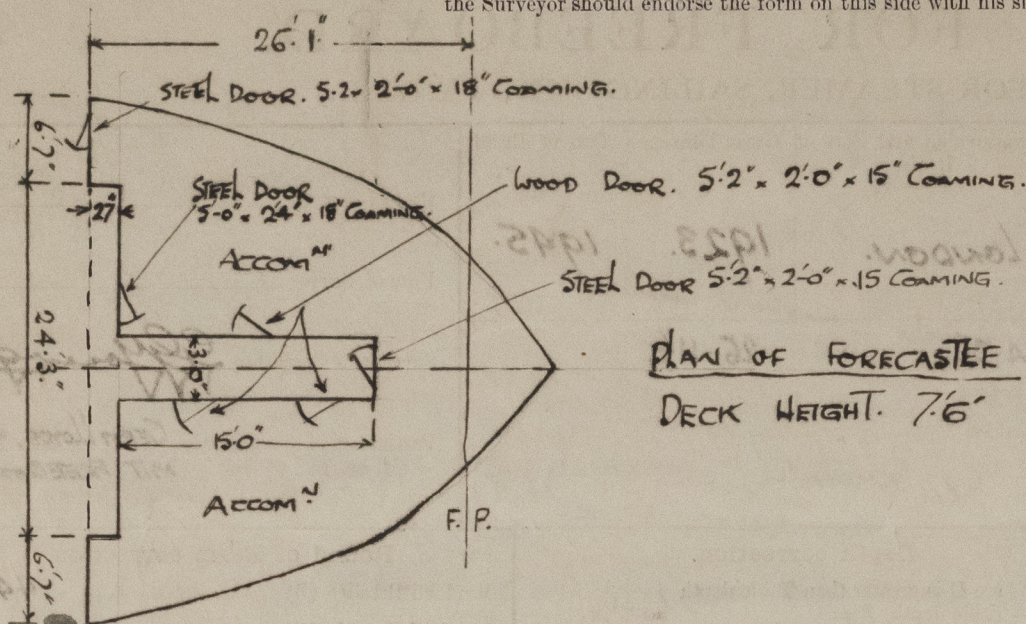 the Surveyor should endorse the form on this side with his
26'.1"
STEEL DOOR. 5.2 × 2'-0" × 18" COAMING.
6'.7"
WOOD DOOR. 5'2" × 2'0" × 15" COAMING.
STEEL DOOR
5'-0" × 2'4" × 18" COAMING.
27"
ACCOM N
STEEL DOOR 5'2" × 2'-0" × 15 COAMING.
24'.3"
3'0"
PLAN OF FORECASTLE
DECK HEIGHT. 7'.6"
15'0"
ACCOM N
F.P.
6'.7"